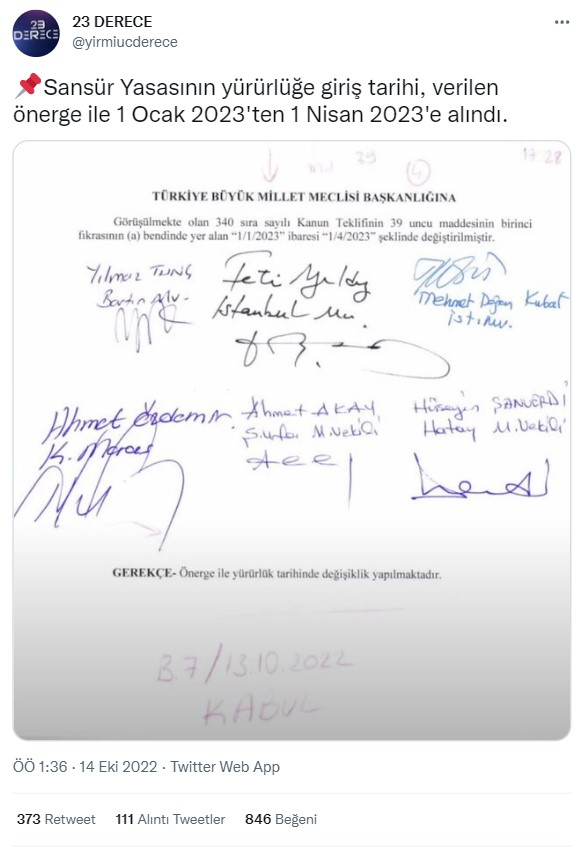 23 DERECE
23 DERECE
@yirmiucderece
Sansür Yasasının yürürlüğe giriş tarihi, verilen
önerge ile 1 Ocak 2023'ten 1 Nisan 2023'e alındı.
29
4
17 28
TÜRKİYE BÜYÜK MİLLET MECLİSİ BAŞKANLIĞINA
Görüşülmekte olan 340 sıra sayılı Kanun Teklifinin 39 uncu maddesinin birinci
fıkrasının (a) bendinde yer alan “1/1/2023” ibaresi “1/4/2023” şeklinde değiştirilmiştir.
Yılmaz TUNÇ
Bartın Mv.
Feti Yıldız
İstanbul Mv.
Mehmet Doğan Kubat
İst. Mv.
Ahmet Özdemir
K. Maraş
Ahmet AKAY
Ş.urfa M.Vekili
Hüseyin ŞANVERDİ
Hatay M.Vekili
GEREKÇE- Önerge ile yürürlük tarihinde değişiklik yapılmaktadır.
B.7/13.10.2022
KABUL
ÖÖ 1:36 · 14 Eki 2022 · Twitter Web App
373 Retweet 111 Alıntı Tweetler 846 Beğeni